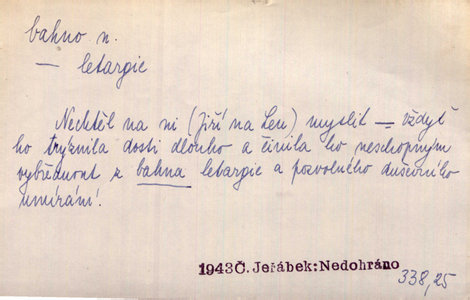 bahno n.
— letargie
Nechtěl na ni (Jiří na Len) myslit — vždyť
ho trýznila dosti dlouho a činila ho neschopným
vybřednout z bahna letargie a pozvolného duševního
umírání.
1943Č. Jeřábek: Nedohráno
338,25